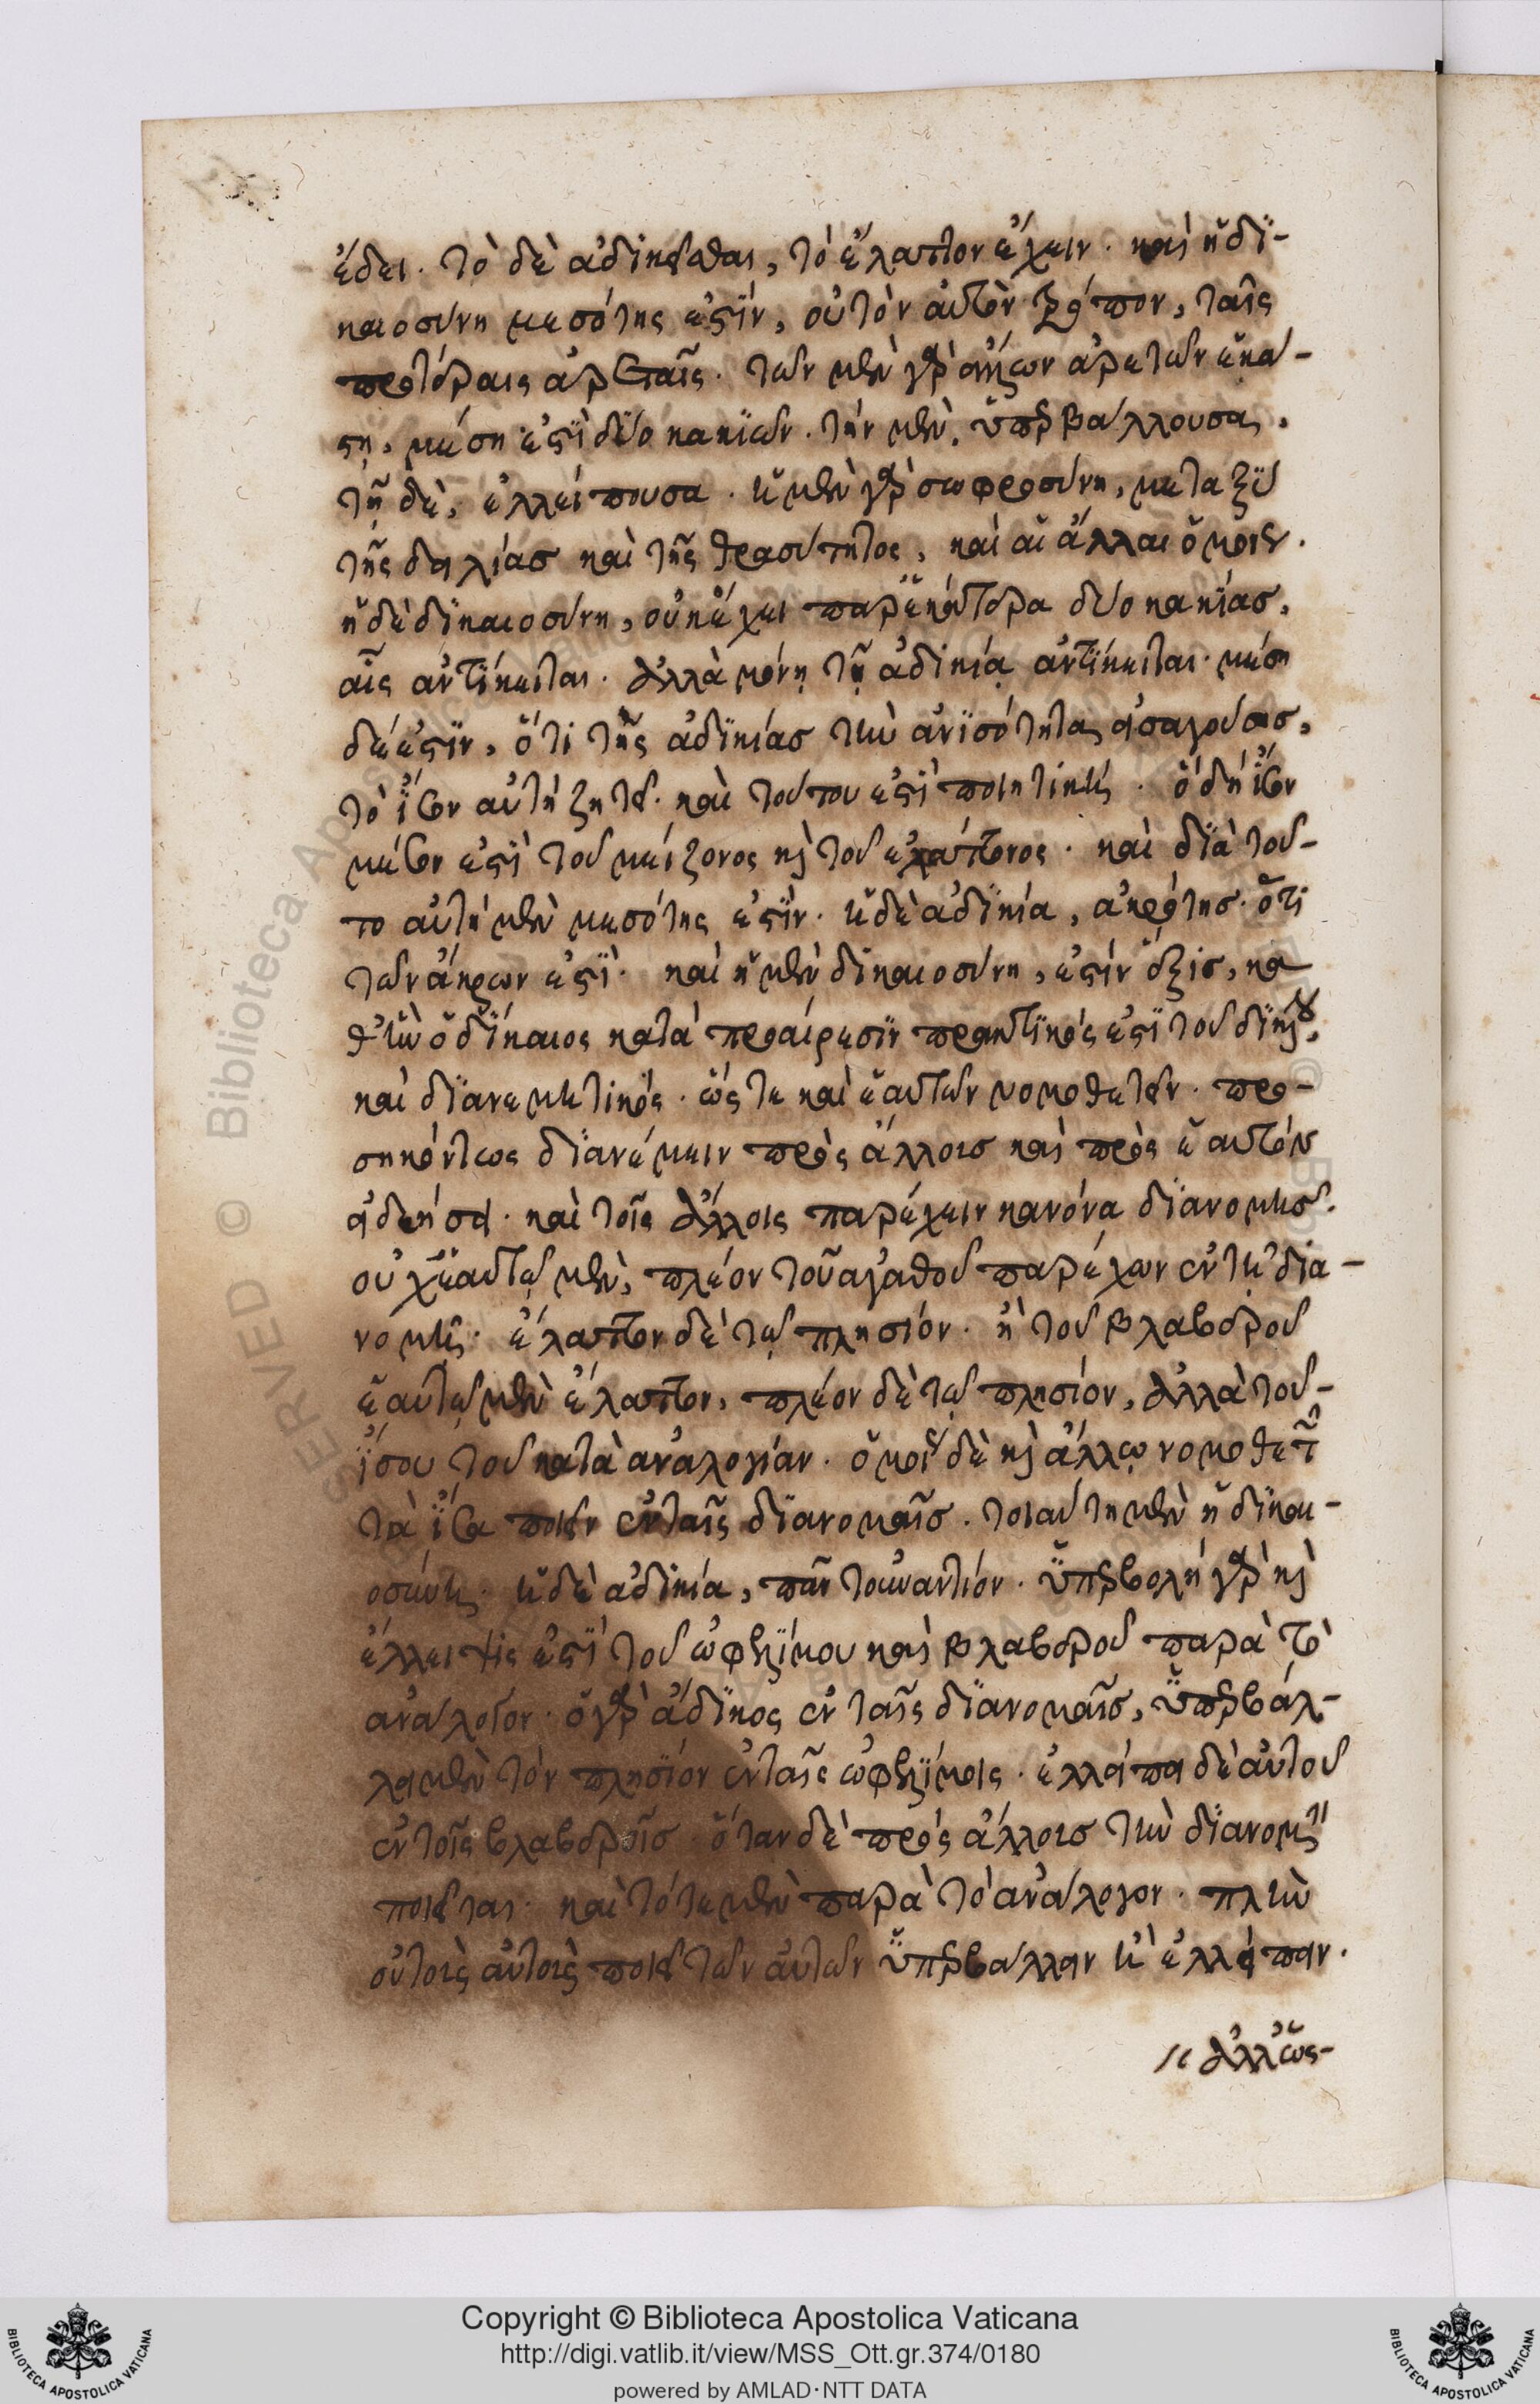 ἔδει. τὸ δὲ ἀδικεῖσθαι, τὸ ἔλαττον ἔχειν. καὶ ἡ δι-
καιοσύνη μεσότης ἐστὶν, οὐ τὸν αὐτὸν τρόπον, ταῖς
προτέραις ἀρεταῖς. τῶν μὲν γὰρ ἄλλων ἀρετῶν ἑκά-
στη, μέση ἐστὶ δύο κακιῶν. τὴν μὲν, ὑπερβάλλουσα,
τῇ δὲ, ἐλλείπουσα. ἡ μὲν γὰρ σωφροσύνη, μεταξὺ
τῆς δειλίας καὶ τῆς θρασύτητος, καὶ αἱ ἄλλαι ὁμοίως.
ἡ δὲ δικαιοσύνη, οὐκ ἔχει παρ' ἑκάτερα δύο κακίας,
αἷς ἀντίκειται. ἀλλὰ μόνῃ τῇ ἀδικίᾳ ἀντίκειται. μέση
δέ ἐστιν, ὅτι τῆς ἀδικίας τὴν ἀνισότητα εἰσαγούσης,
τὸ ἴσον αὐτὴ ζητεῖ. καὶ τούτου ἐστὶ ποιητική. ὃ δὴ ἴσον
μέσον ἐστὶ τοῦ μείζονος καὶ τοῦ ἐλάττονος. καὶ διὰ τοῦ-
το αὐτὴ μὲν μεσότης ἐστίν. ἡ δὲ ἀδικία, ἀκρότης. ὅτι
τῶν ἄκρων ἐστὶ. καὶ ἡ μὲν δικαιοσύνη, ἐστὶν ἕξις, κα
θ' ἣν ὁ δίκαιος κατὰ προαίρεσιν πρακτικός ἐστι τοῦ δικαίου,
καὶ διανεμητικός. ὥστε καὶ ἑαυτῶν νομοθετεῖν. προ-
σηκόντως διανέμειν πρὸς ἄλλοις καὶ πρὸς ἑαυτὸν
καὶ τοῖς ἄλλοις παρέχειν κανόνα διανομῆς.
οὐχ ἑαυτῷ μὲν, πλέον τοῦ ἀγαθοῦ παρέχων ἐν τῇ δια-
νομῇ. ἔλαττον δὲ τῷ πλησίον. ἢ τοῦ βλαβεροῦ
ἑαυτῷ μὲν ἔλαττον, πλέον δὲ τῷ πλησίον, ἀλλὰ τοῦ-
ἴσου τοῦ κατὰ ἀναλογίαν. ὁμοίως δὲ καὶ ἄλλῳ νομοθετεῖ
τὰ ἴσα ποιεῖν ἐν ταῖς διανομαῖς. τοιαύτη μὲν ἡ δικαι-
οσύνη. ἡ δὲ ἀδικία, πᾶν τοὐναντίον. ὑπερβολὴ γὰρ καὶ
ἔλλειψίς ἐστι τοῦ ὠφελίμου καὶ βλαβεροῦ παρὰ τὸ
ἀνάλογον. ὁ γὰρ ἄδικος ἐν ταῖς διανομαῖς, ὑπερβάλ-
λει μὲν τὸν πλησίον ἐν ταῖς ὠφελίμοις. ἐλλείπει δὲ αὐτοῦ
ἐν τοῖς βλαβεροῖς. ὅταν δὲ πρὸς ἄλλοις τὴν διανομὴν
ποιεῖται. καὶ τότε μὲν παρὰ τὸ ἀνάλογον. πλὴν
οὐ τοὶς αὐτοὶς ποιεῖ τῶν αὐτῶν ὑπερβάλλειν ἢ ἐλλείπειν.
ἀλλ' ὡς-
Copyright © Biblioteca Apostolica Vaticana
http://digi.vatlib.it/view/MSS_Ott.gr.374/0180
powered by AMLAD·NTT DATA